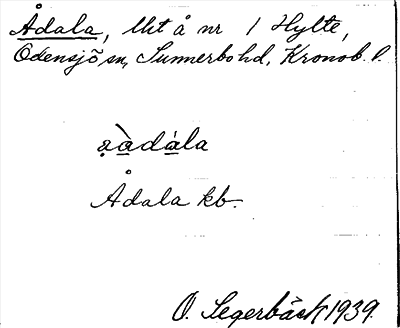 Ådala, lht å nr 1 Hylte,
Odensjö sn, Sunnerbo hd, Kronob. l.
ạàdála
Ådala kb.
O. Segerbäck 1939.